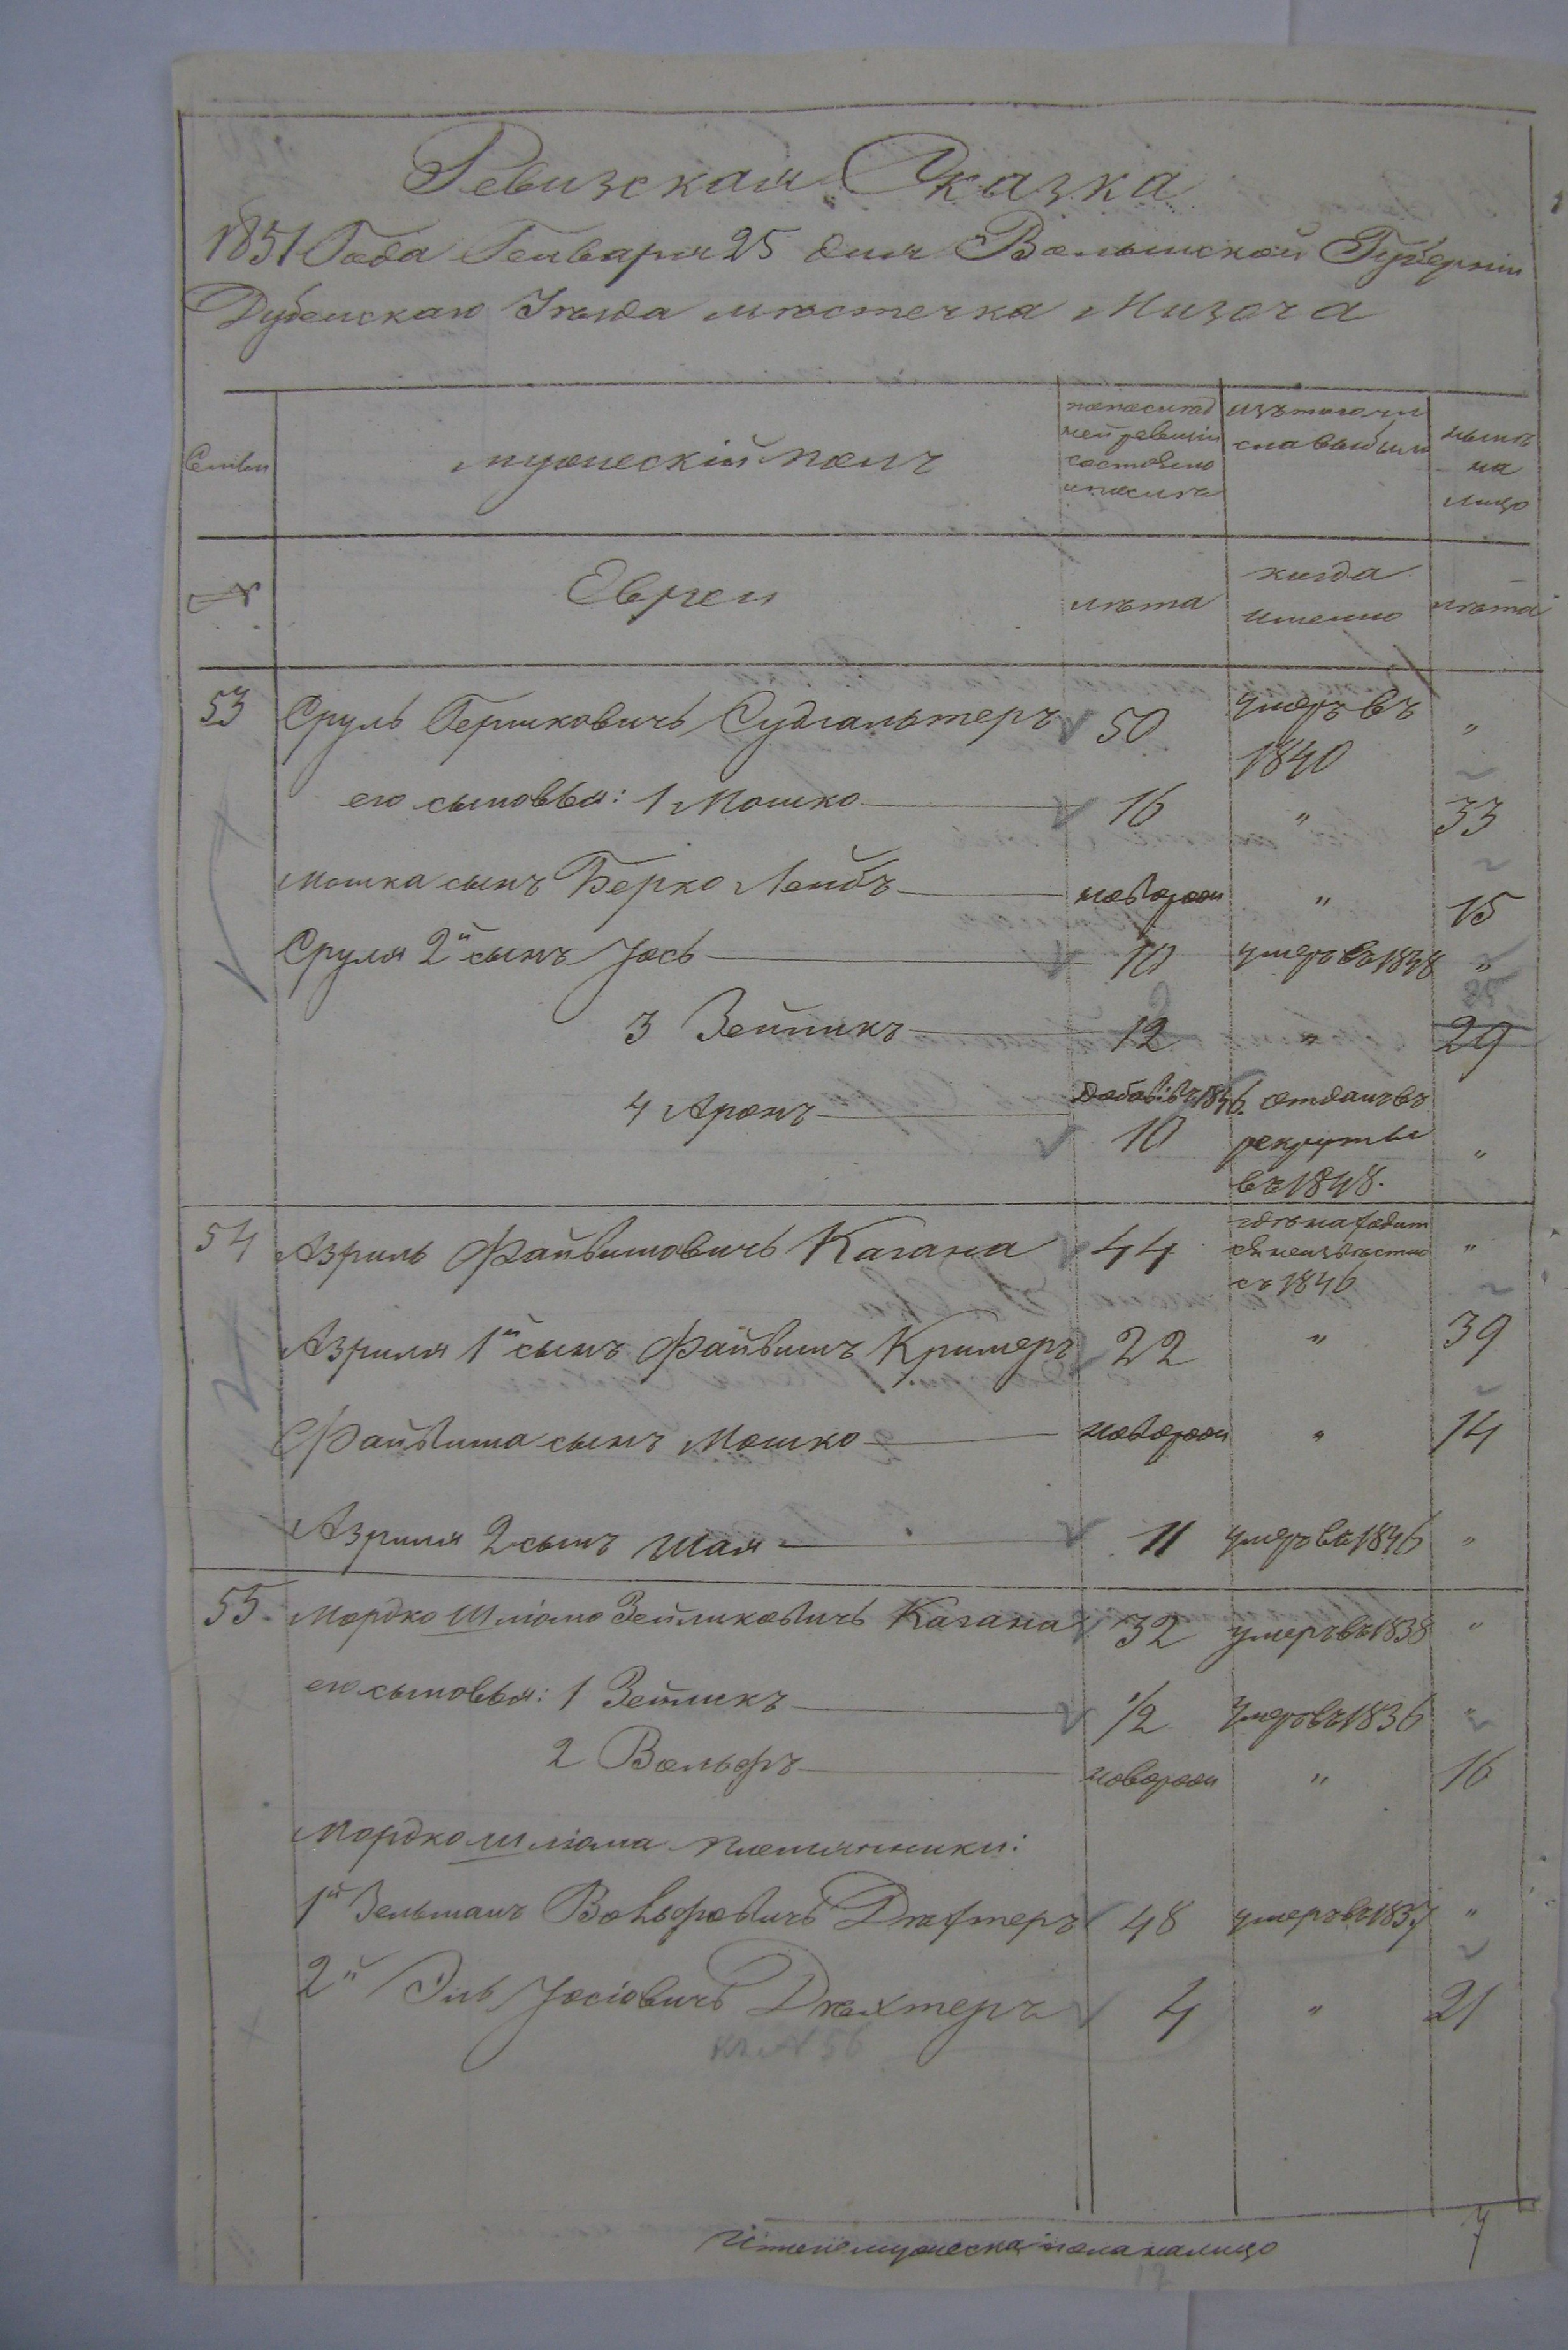 Ревизская Сказка
1851 Года Генваря 25 дня Волынской Губерніи
Дубенскаго Уѣзда мѣстечка Мизоча
Семьи мужескій полъ попослѣд ней ревизіи состояло и послѣ изътого чи сла выбыли нынѣ на лицо
№ Евреи лѣта когда именно лѣта
53 Сруль Гершковичь Судгальтеръ 50 умеръ въ 1840 "
его сыновья: 1 Мошко 16 " 33
Мошка сынъ Берко Лейбъ новорож " 15
Сруля 2й сынъ Іось 10 умеръ въ 1848 "
3 Зейликъ 12 " 29 25
4 Аронъ добав: въ 1846. 10 отданъ въ рекруты въ 1848. "
54 Азриль Файвишовичь Кагана 44 гдѣ находит ся неизвѣстно съ 1846 "
Азриля 1й сынъ Файвишъ Кримеръ 22 " 39
Файвиша сынъ Мошко новорож " 14
Азриля 2 сынъ Шая 11 умеръ въ 1846 "
55. Мордко Шліома Зейликовичь Кагана 32 умеръ въ 1838 "
его сыновья: 1 Зейликъ 1/2 умеръ въ 1836 "
2 Вольфъ новорож " 16
Мордко Шліома племянники:
1й Зельманъ Вольфовичь Дехтеръ 48 умеръ въ 1837 "
2й Эль Іосіовичь Дехтеръ 4 " 21
къ № 56
Итого мужеска пола налицо 7